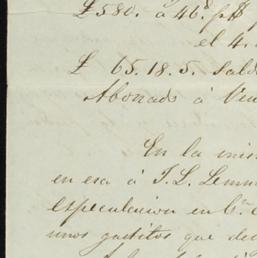 £580. á 46⁰. p$
el 4.
£ 65.18.5. Sald
Abonado á
En la mis
en esa á J. L. Lemm
especulacion en
unos gastitos que de